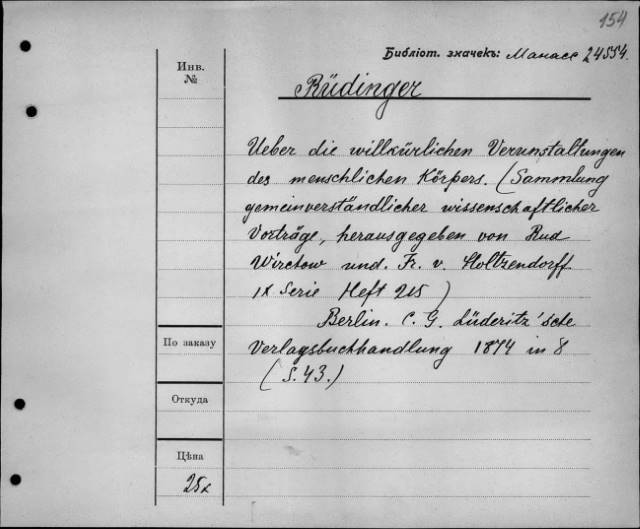 154
Библіот. значекъ: Манасс 24554.
Инв.
№
Rüdinger
Ueber die willkürlichen Verunstaltungen
des menschlichen Körpers. (Sammlung
gemeinverständlicher wissenschaftlicher
Vorträge, herausgegeben von Rud
Wirchow und. Fr. v. Holtzendorff
IX Serie Heft 215)
Berlin. C. G. Lüderitz'sche
Verlagsbuchhandlung 1874 in 8
(S. 43.)
По заказу
Откуда
Цѣна
25к